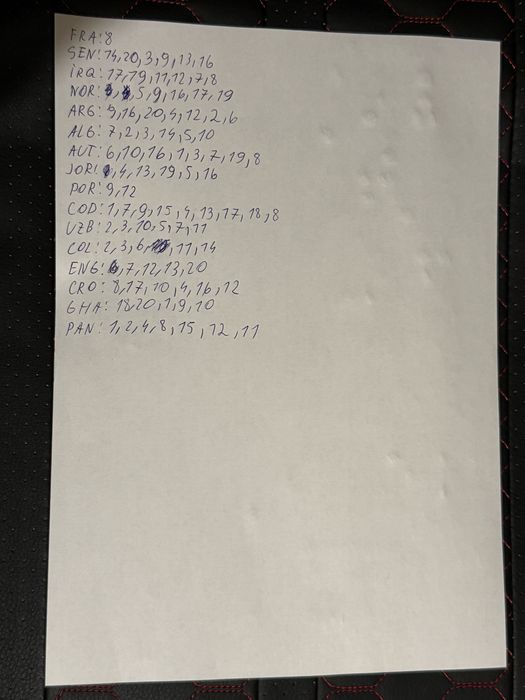 FRA: 8
SEN: 14,20,3,9,13,16
İRQ: 17,19,11,12,7,8
NOR: 5,9,16,17,19
ARG: 9,16,20,4,12,2,6
ALG: 7,2,3,14,5,10
AUT: 6,10,16,1,3,7,19,8
JOR: 4,13,19,5,16
POR: 9,12
COD: 1,7,9,15,4,13,17,18,8
UZB: 2,3,10,5,7,11
COL: 2,3,6,11,14
ENG: 7,12,13,20
CRO: 8,17,10,4,16,12
GHA: 18,20,1,9,10
PAN: 1,2,4,8,15,12,11